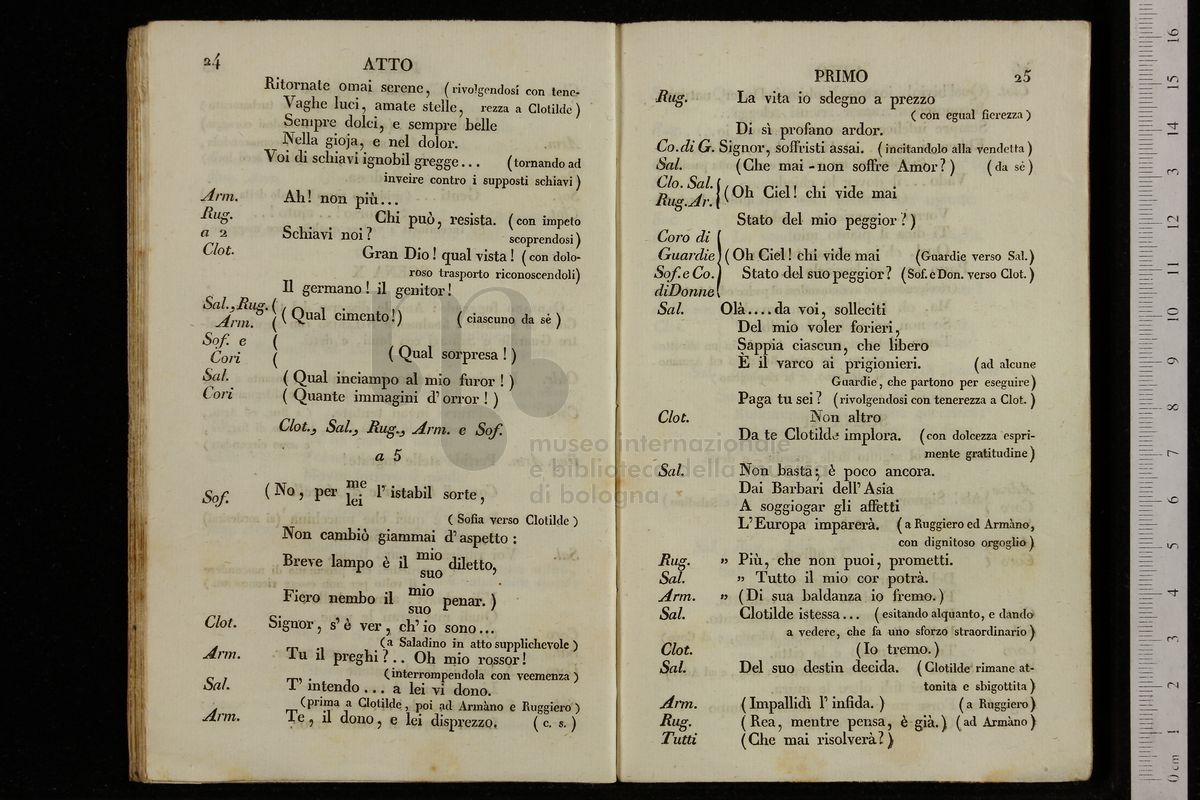 24
ATTO
Ritornate omai serene, (rivolgendosi con tene-
Vaghe luci, amate stelle, rezza a Clotilde)
Sempre dolci, e sempre belle
Nella gioja, e nel dolor.
Voi di schiavi ignobil gregge... (tornando ad
inveire contro i supposti schiavi)
Arm. Ah! non più...
Rug. Chi può, resista. (con impeto
a 2 Schiavi noi? scoprendosi)
Clot. Gran Dio! qual vista! (con dolo-
roso trasporto riconoscendoli)
Il germano! il genitor!
Sal., Rug. (
Arm. ( (Qual cimento!) (ciascuno da sé)
Sof. e (
Cori ( (Qual sorpresa!)
Sal. (Qual inciampo al mio furor!)
Cori (Quante immagini d'orror!)
Clot., Sal., Rug., Arm. e Sof.
a 5
Sof. (No, per me l'istabil sorte,
lei
(Sofia verso Clotilde)
Non cambiò giammai d'aspetto:
Breve lampo è il mio diletto,
suo
Fiero nembo il mio penar.)
suo
Clot. Signor, s'è ver, ch'io sono...
(a Saladino in atto supplichevole)
Arm. Tu il preghi?.. Oh mio rossor!
(interrompendola con veemenza)
Sal. T'intendo... a lei vi dono.
(prima a Clotilde, poi ad Armàno e Ruggiero)
Arm. Te, il dono, e lei disprezzo. (c. s.)
PRIMO
25
Rug. La vita io sdegno a prezzo
(con egual fierezza)
Di sì profano ardor.
Co.di G. Signor, soffristi assai. (incitandolo alla vendetta)
Sal. (Che mai non soffre Amor?) (da sé)
Clo. Sal. (
Rug. Ar. ( (Oh Ciel! chi vide mai
Stato del mio peggior?)
Coro di (
Guardie) (Oh Ciel! chi vide mai (Guardie verso Sal.)
Sof. e Co.) Stato del suo peggior? (Sof. e Don. verso Clot.)
di Donne(
Sal. Olà....da voi, solleciti
Del mio voler forieri,
Sappia ciascun, che libero
È il varco ai prigionieri. (ad alcune
Guardie, che partono per eseguire)
Paga tu sei? (rivolgendosi con tenerezza a Clot.)
Clot. Non altro
Da te Clotilde implora. (con dolcezza espri-
mente gratitudine)
Sal. Non basta; è poco ancora.
Dai Barbari dell'Asia
A soggiogar gli affetti
L'Europa imparerà. (a Ruggiero ed Armàno,
con dignitoso orgoglio)
Rug. » Più, che non puoi, prometti.
Sal. » Tutto il mio cor potrà.
Arm. » (Di sua baldanza io fremo.)
Sal. Clotilde istessa... (esitando alquanto, e dando
a vedere, che fa uno sforzo straordinario)
Clot. (Io tremo.)
Sal. Del suo destin decida. (Clotilde rimane at-
tonita e sbigottita)
Arm. (Impallidì l'infida.) (a Ruggiero)
Rug. (Rea, mentre pensa, è già.) (ad Armàno)
Tutti (Che mai risolverà?)
museo internazionale
e biblioteca della musica
di bologna
0 cm 1 2 3 4 5 6 7 8 9 10 11 12 13 14 15 16